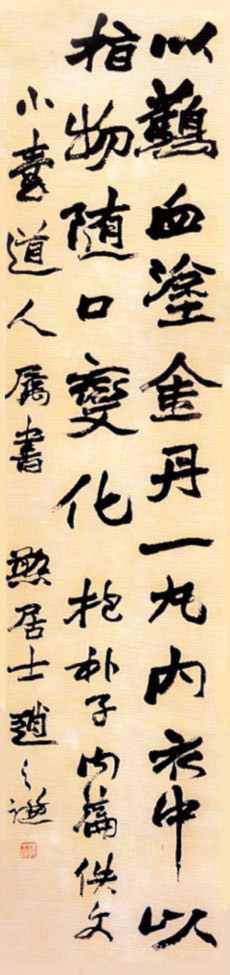 以鷄血塗金丹一丸内衣中以
指物随口變化 抱朴子内篇佚文
小臺道人屬書 憨居士趙之謙